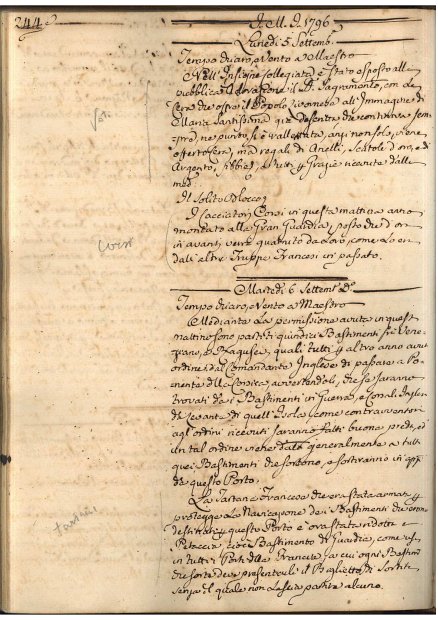 244
A. M. D. 1796
Lunedi 5 Settemb.
Tempo chiaro, e Vento a Maestro
Nell'Insigne Collegiata è stato esposto alla
pubblica adorazione il S. Sagramento, con de-
il Popolo, all'Immagine di
Maria Santissima che continua sem-
pre, ne punto si è rallentata, anzi non solo viene
offerto Cera, ma regali di Anelli, Scattole d'oro, e di
Argento, Fibbie, e tutti p Grazie ricevute dalla
med.
Il Solito Blocco
Corsi
I Cacciatori Corsi in questa mattina anno
montato alla Gran Guardia, posto che d'ora
in avanti verrà guarnito da Loro, come lo era
dall'altre Truppe Francesi in passato.
Martedi 6 Settemb. D.o
Tempo chiaro, e Vento a Maestro
Mediante la permissione avuta in questa
mattina sono partiti quindici Bastimenti frà Vene-
ziani, e Ragusei, quali tutti p altro anno avuto
ordine dal Comandante Inglese di passare a Po-
nente della Corsica, avvertendoli, che se saranno
trovati da i Bastimenti in Guerra, e Corsali Inglesi
di Levante di quell'Isola come contraventori
agl'ordini ricevuti saranno fatti buona preda, ed
un tal ordine viene dato generalmente a tutti
quei Bastimenti che sortono, e sortiranno in
da questo Porto.
tartana
La Tartana Francese che era stata armata p
proteggere la Navigazione de i Bastimenti che erano
destinati p questo Porto è ora stata ridotta a
Petaccia, cioè Bastimento di Guardia, come usa
in tutti i Porti della Francia, a cui ogni Bastim.
che sorte deve presentarli il Biglietto di Sortita
senza il quale non Lascia partire alcuno.